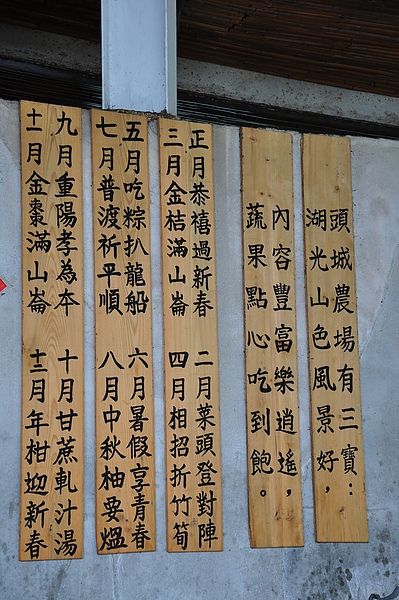 頭城農場有三寶：
湖光山色風景好，
內容豐富樂逍遙，
蔬果點心吃到飽。
正月恭禧過新春　二月菜頭登對陣
三月金桔滿山崙　四月相招折竹筍
五月吃粽扒龍船　六月暑假享青春
七月普渡祈平順　八月中秋柚要熅
九月重陽孝為本　十月甘蔗軋汁湯
十一月金棗滿山崙　十二月年柑迎新春